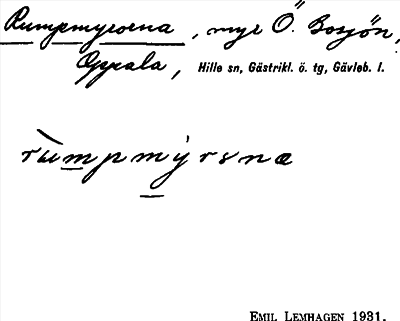 Rumpmyrorna, myr Ö. Bosjön,
Oppala, Hille sn, Gästrikl. ö. tg, Gävleb. l.
rùmpmýrsnæ
EMIL LEMHAGEN 1931.